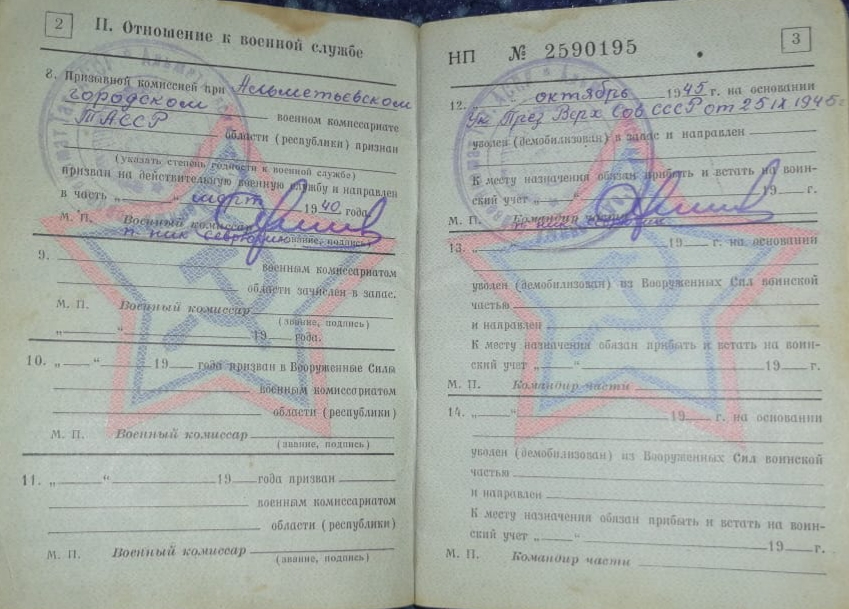 2
II. Отношение к военной службе
8. Призывной комиссией при Альметьевском
городском военном комиссариате
ТАССР области (республики) признан
(указать степень годности к военной службе)
призван на действительную военную службу и направлен
в часть „ “ март 1940 года.
М. П. Военный комиссар
п п-ник
(звание, подпись)
9.
военным комиссариатом
области зачислен в запас.
М. П. Военный комиссар
(звание, подпись)
„ “ 19 года.
10. „ “ 19 года призван в Вооруженные Силы
военным комиссариатом
области (республики)
М. П. Военный комиссар
(звание, подпись)
11. „ “ 19 года призван
военным комиссариатом
области (республики)
М. П. Военный комиссар
(звание, подпись)
НП № 2590195
3
12. „ “ октябрь 1945 г. на основании
Ук През Верх Сов СССР от 25 IX 1945 г
уволен (демобилизован) в запас и направлен
К месту назначения обязан прибыть и встать на воин-
ский учет „ “ 19 г.
М. П. Командир части
13. „ “ 19 г. на основании
уволен (демобилизован) из Вооруженных Сил воинской
частью
и направлен
К месту назначения обязан прибыть и встать на воин-
ский учет „ “ 19 г.
М. П. Командир части
14. „ “ 19 г. на основании
уволен (демобилизован) из Вооруженных Сил воинской
частью
и направлен
К месту назначения обязан прибыть и встать на воин-
ский учет „ “ 19 г.
М. П. Командир части